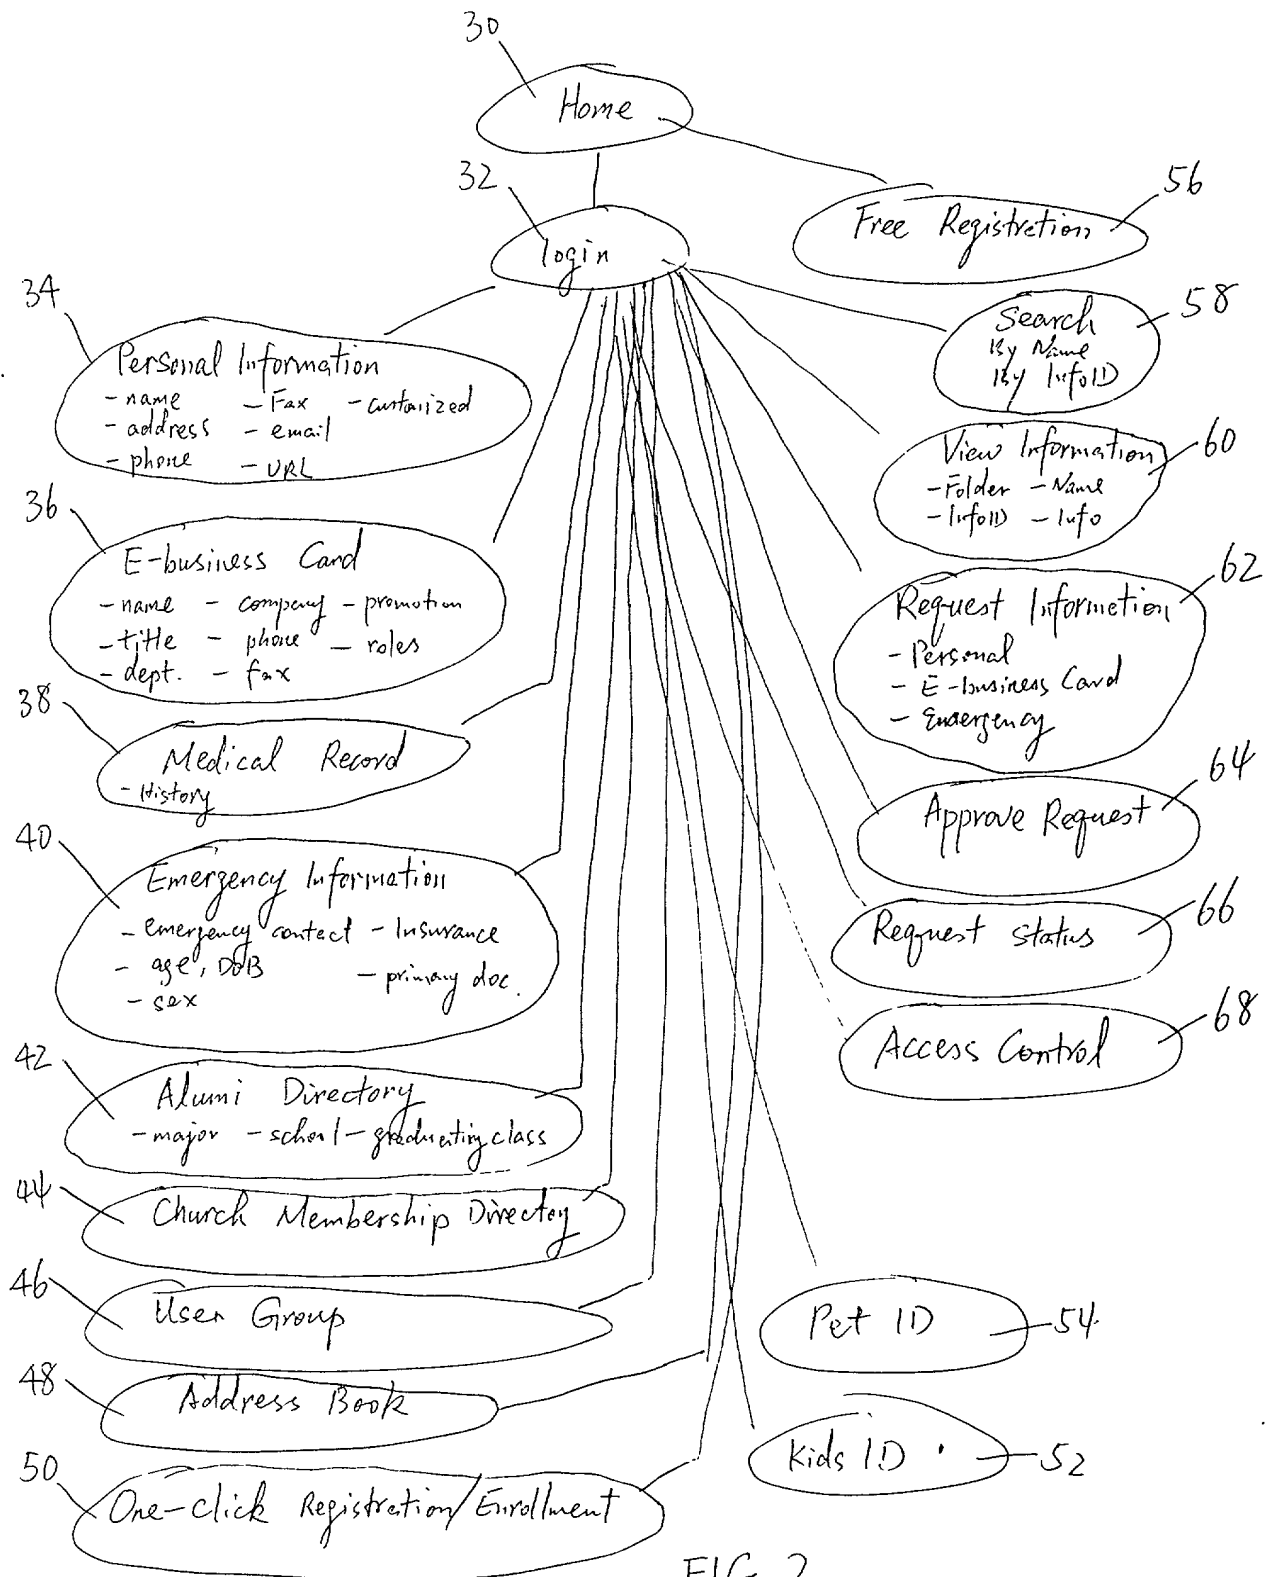 30
Home
32
login
56
Free Registretion
34
Personal Information
- name - Fax - customized
- address - email
- phone - URL
58
Search
By Name
By InfoID
60
View Information
- Folder - Name
- InfoID - Info
36
E-business Card
- name - company - promotion
- title - phone - roles
- dept. - fax
62
Request Information
- Personal
- E-business Card
- Emergency
38
Medical Record
- History
64
Approve Request
40
Emergency Information
- emergency contact - Insurance
- age, DOB - primary doc.
- sex
66
Request status
68
Access Control
42
Alumi Directory
- major - school - graduating class
44
Church Membership Directoy
46
User Group
Pet ID
54
48
Address Book
Kids ID
52
50
One-click Registration/Enrollment
FIG 2